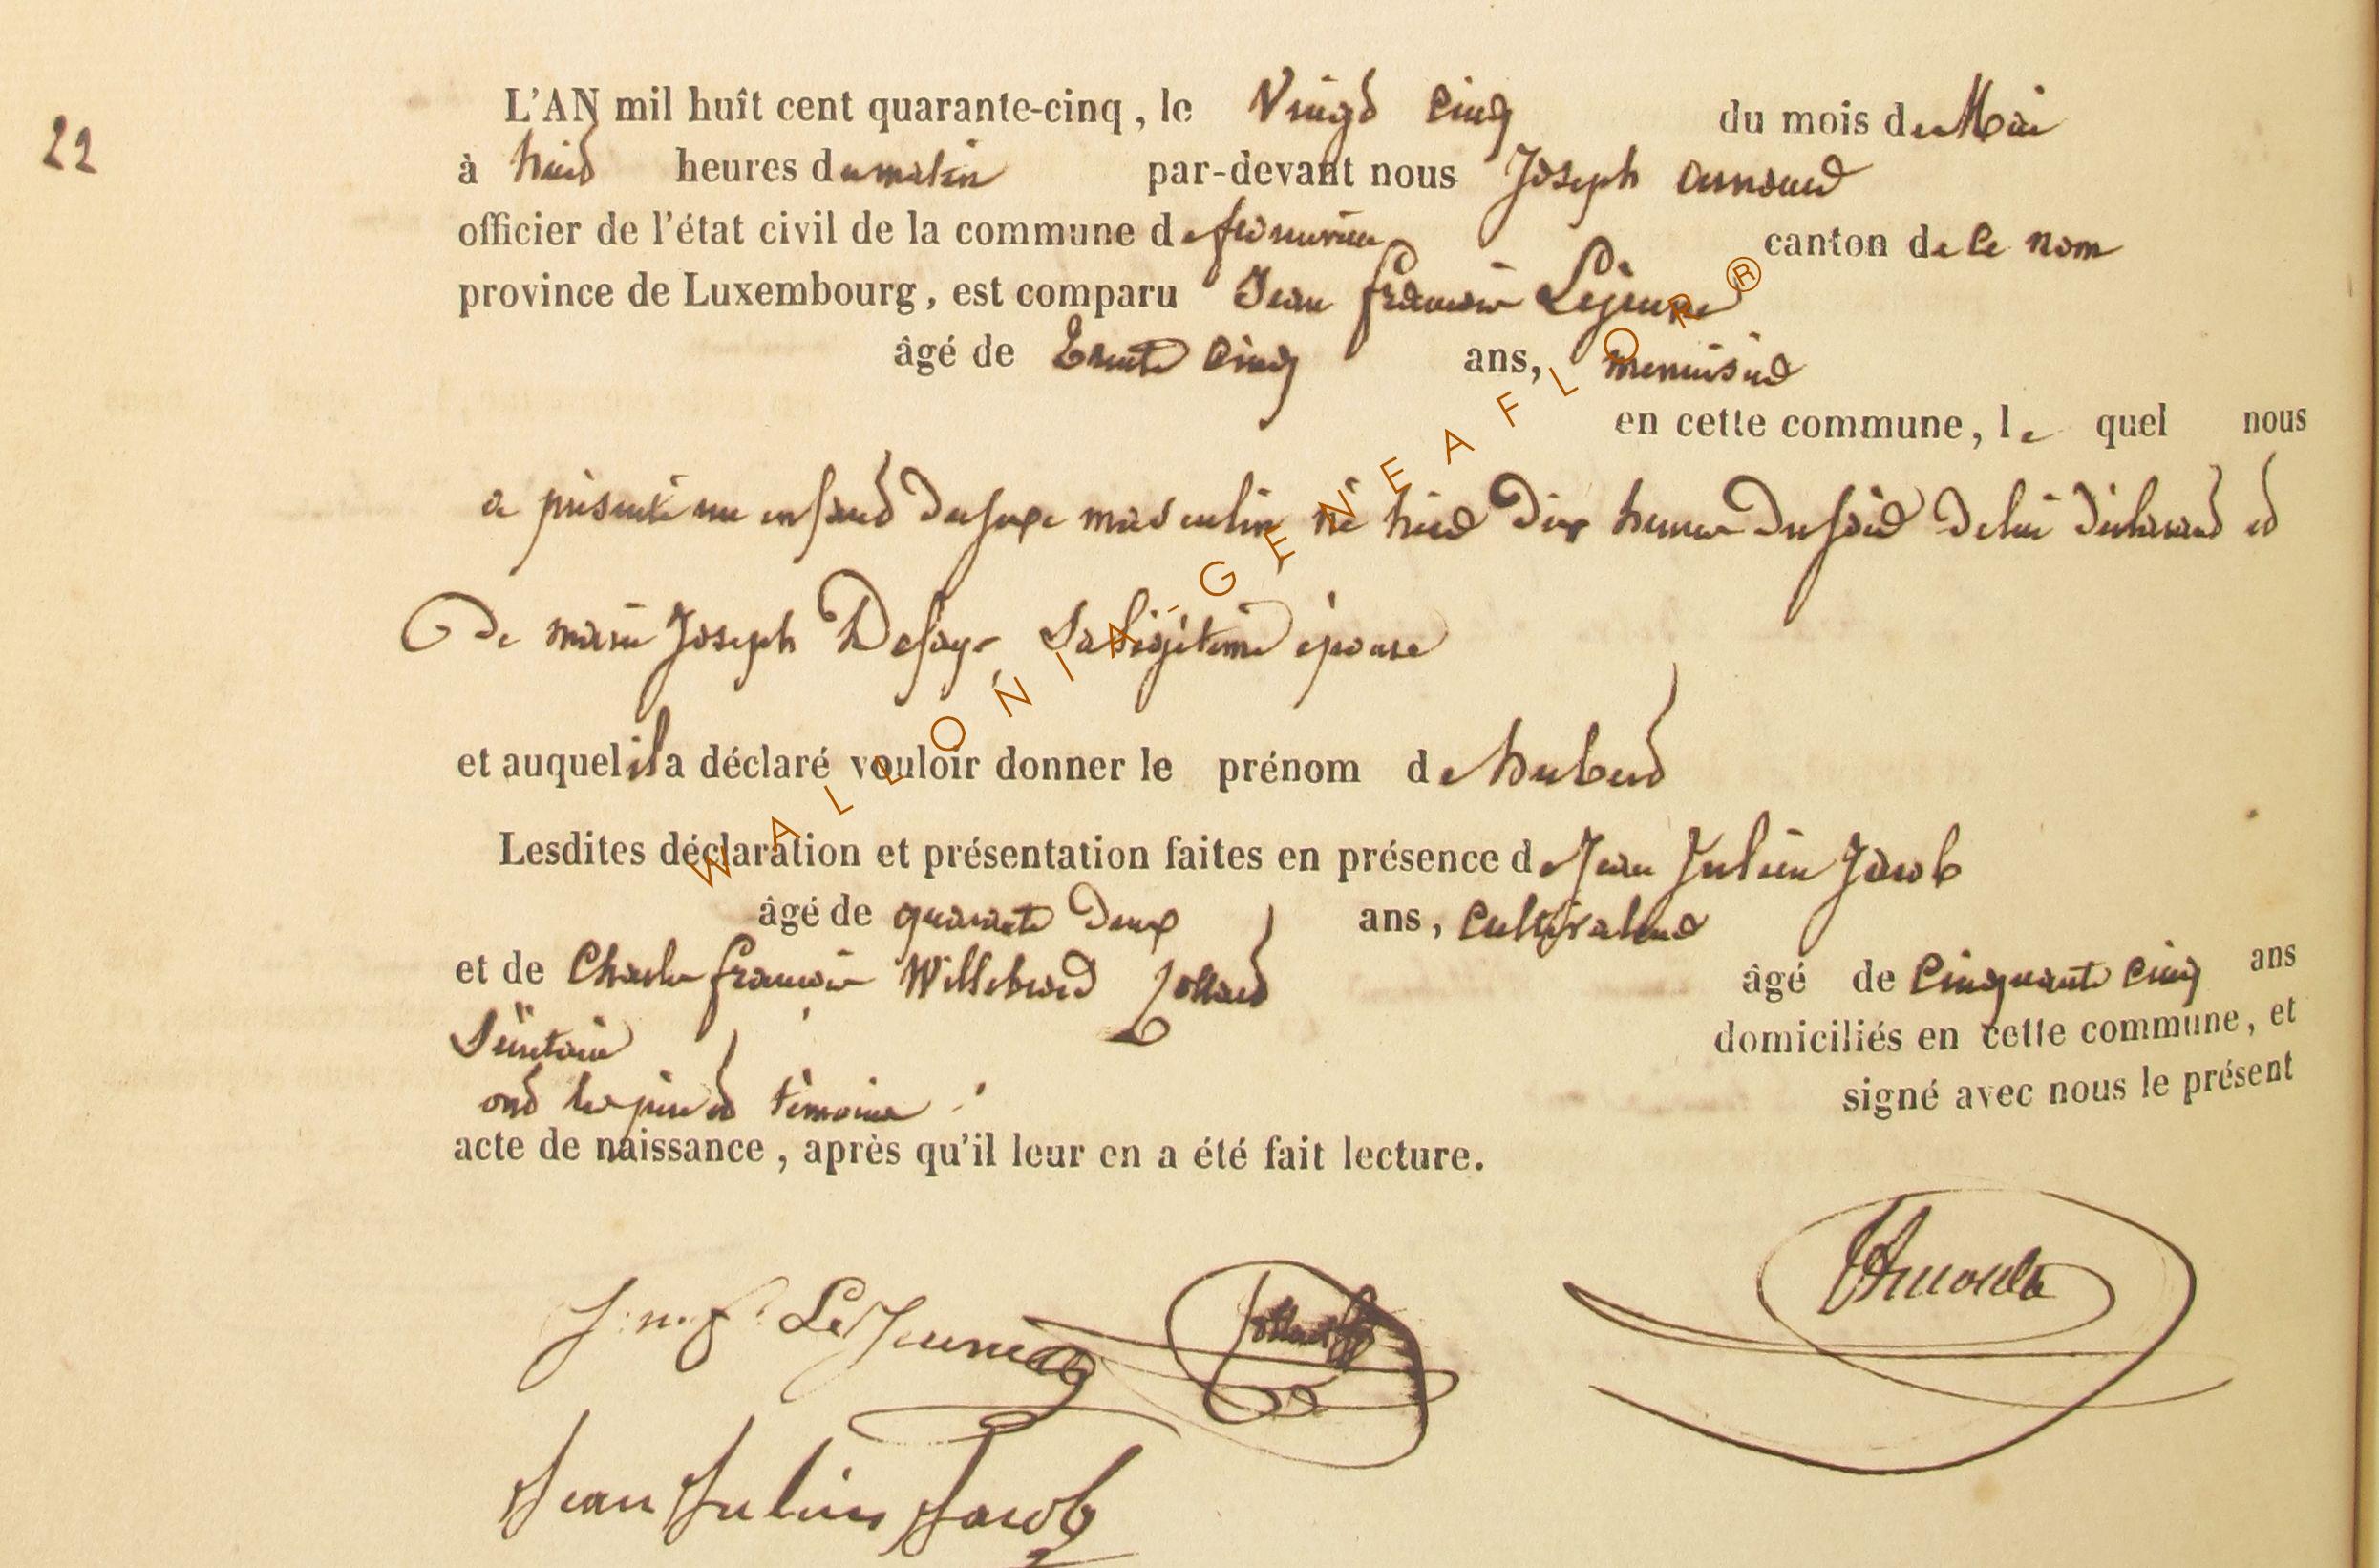 22
L'AN mil huît cent quarante-cinq, le Vingt Cinq du mois de Mai
à huit heures du matin par-devant nous Joseph arnould
officier de l'état civil de la commune de canton de le nom
province de Luxembourg, est comparu Jean françois Lejeune
âgé de Trente Cinq ans, menuisier
en cette commune, le quel nous
a présenté un enfant du sexe masculin né hier Dix heures Du soir De lui Déclarant et
De marie Joseph Defays Sa Légitime épouse
et auquel il a déclaré vouloir donner le prénom de hubert
Lesdites déclaration et présentation faites en présence de Jean Julien Jacob
âgé de quarante Deux ans, Cultivateur
et de Charles françois Willebrord Jottard âgé de Cinquante Cinq ans
Sécrétaire domiciliés en cette commune, et
ont les père et témoins signé avec nous le présent
acte de naissance, après qu'il leur en a été fait lecture.
J. n. f. LeJeune
Jottard
JArnould
Jean Julien Jacob
WALLONIA-GENEAFLOR®